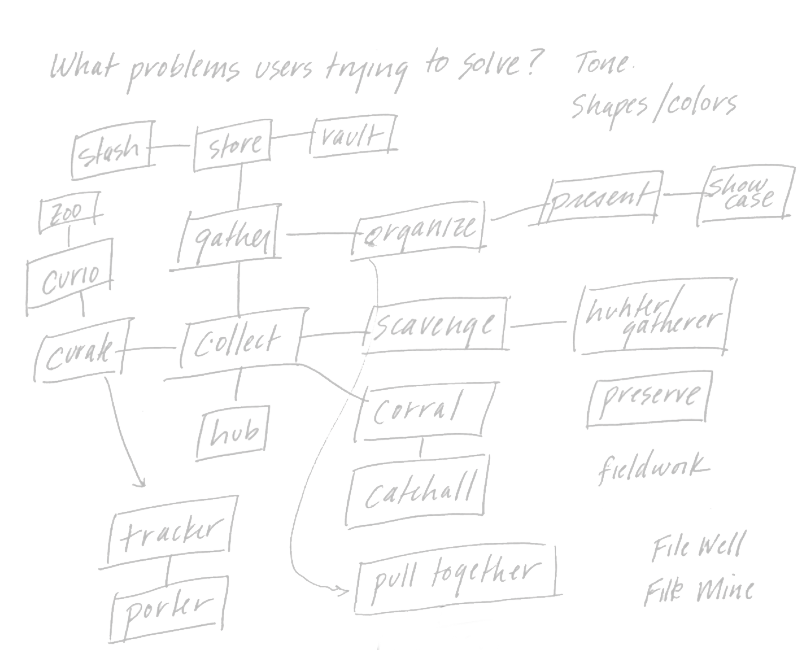 What problems users trying to solve?
Tone.
Shapes/colors
stash
store
vault
zoo
gather
organize
present
show
case
curio
curate
collect
scavenge
hunter/
gatherer
hub
corral
preserve
catchall
fieldwork
tracker
porter
pull together
File Well
File Mine